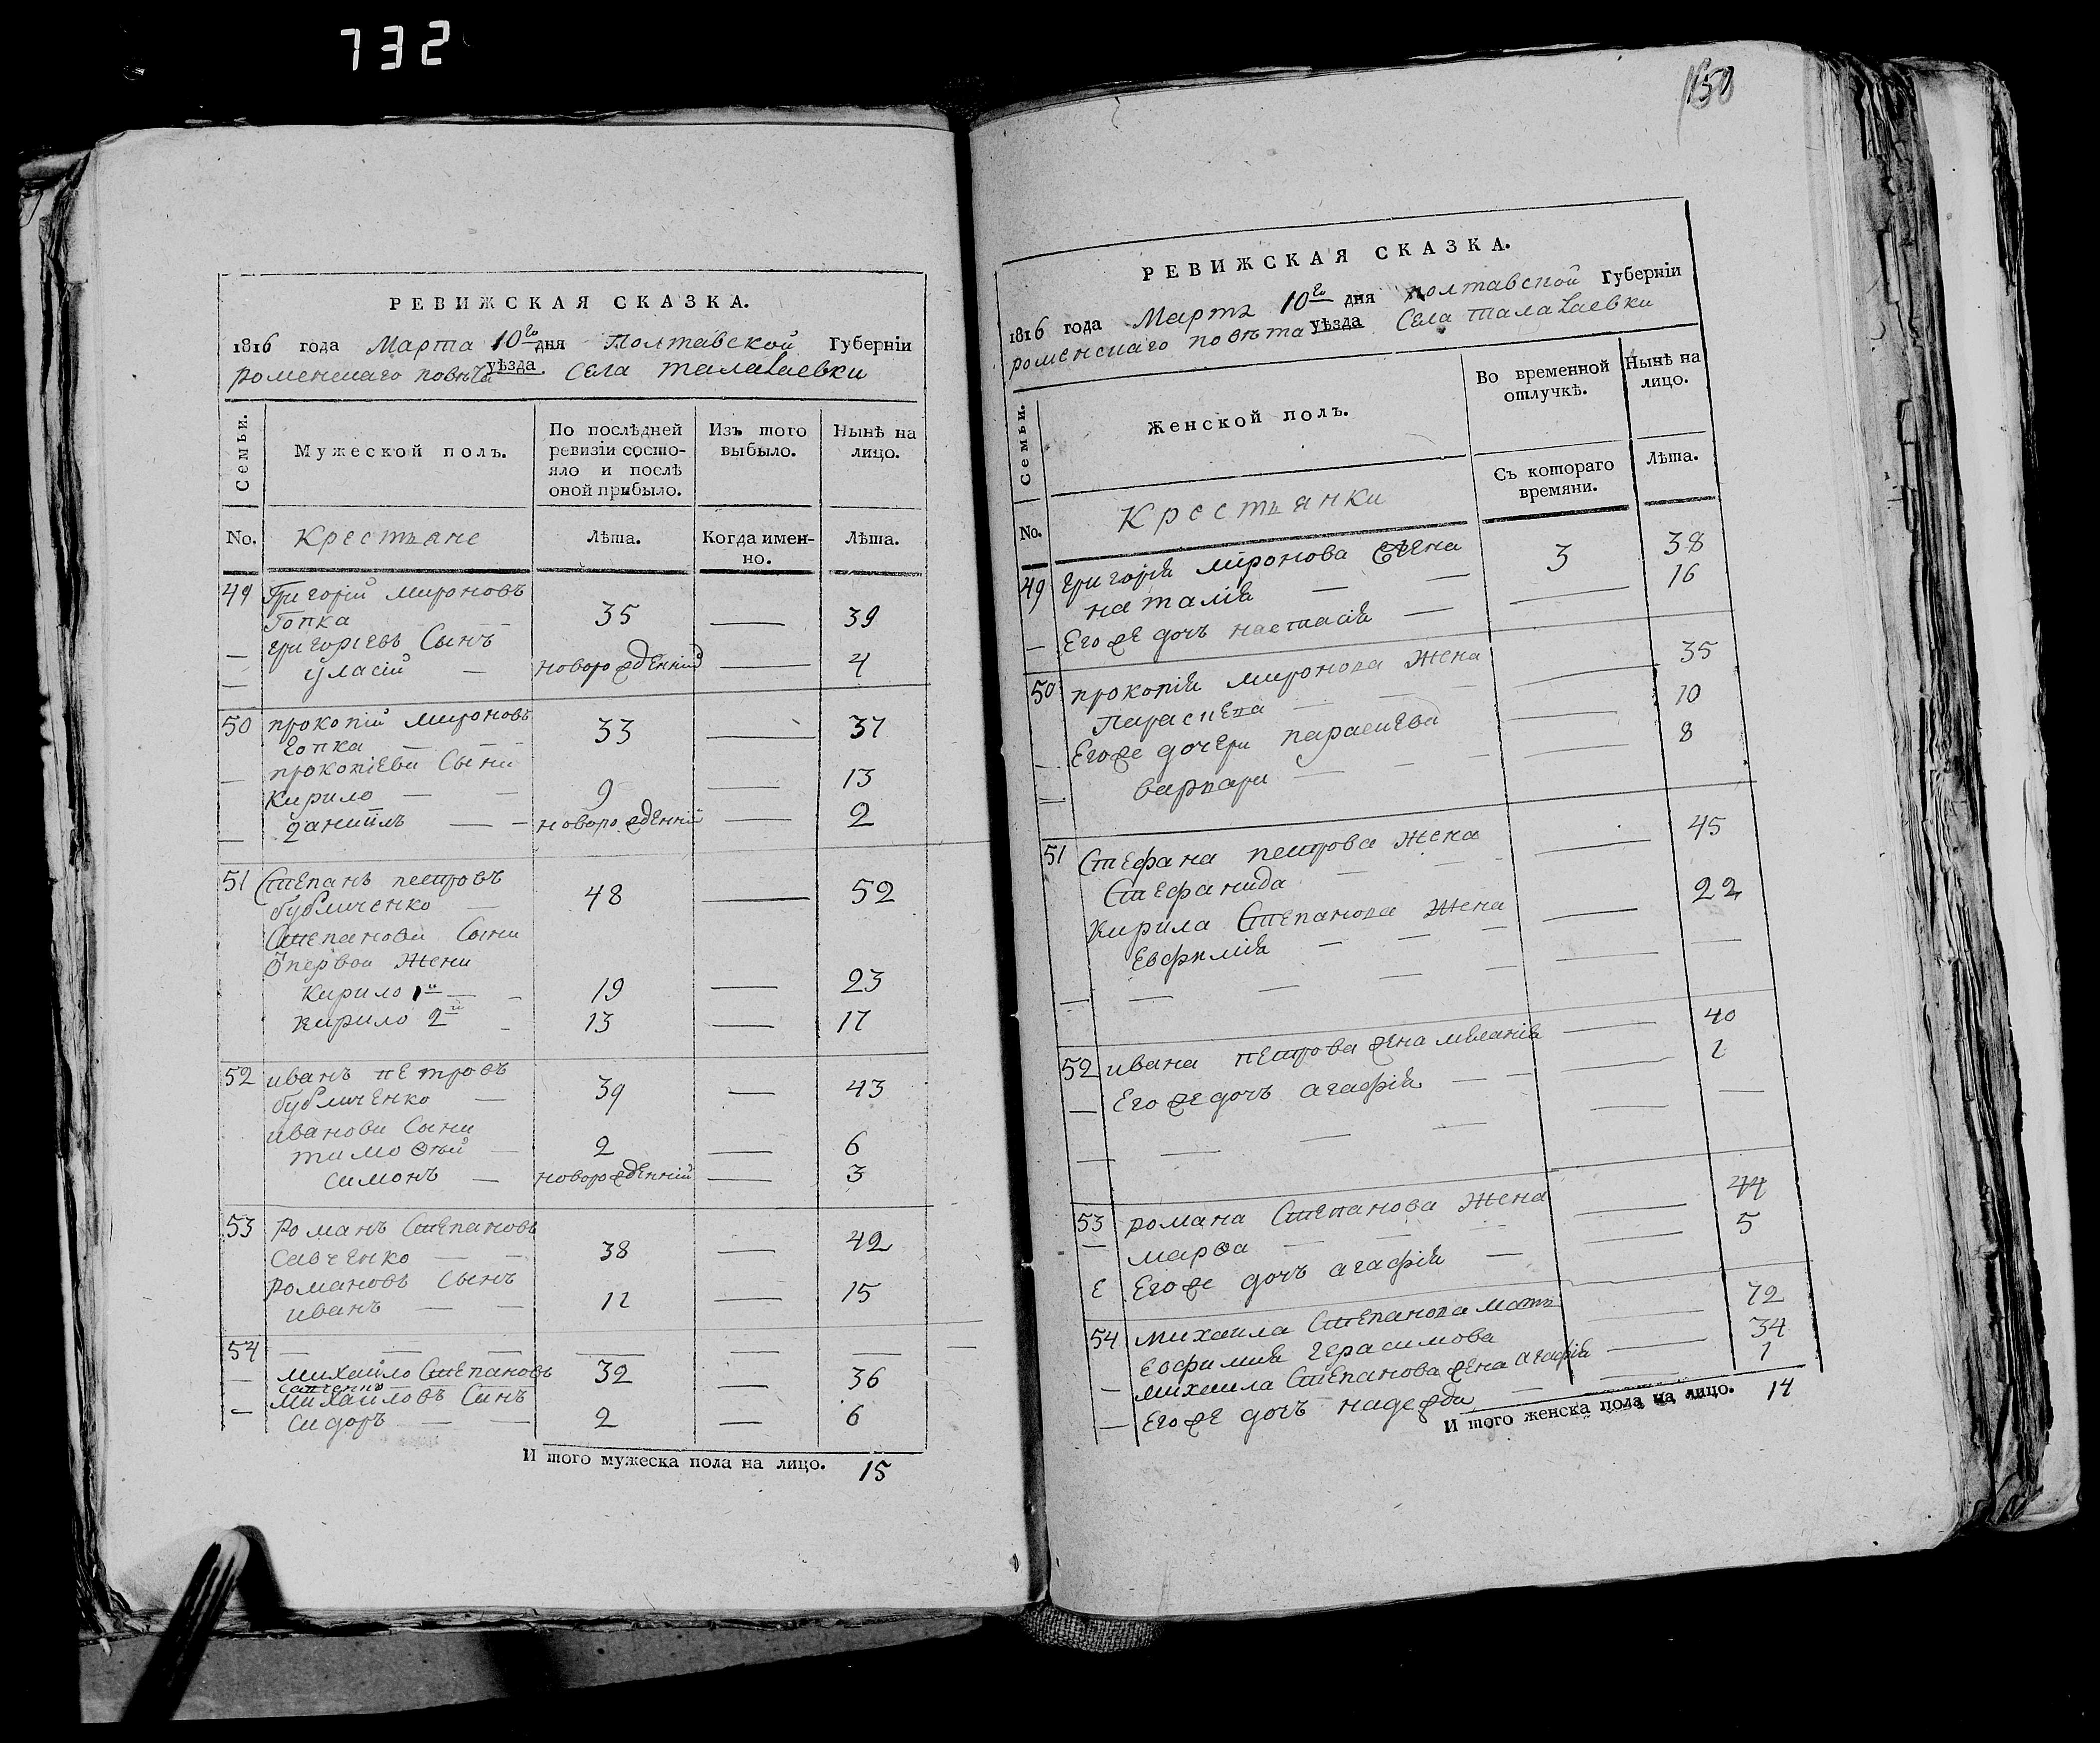 732
РЕВИЖСКАЯ СКАЗКА.
1816 года Марта 10го дня Полтавской Губерніи
роменскаго повѣта уѣзда Села талалаевки
Семьи. Мужеской полъ. По послѣдней ревизіи состо-яло и послѣ оной прибыло. Изъ того выбыло. Нынѣ на лицо.
No. Крестьяне Лѣта. Когда имен-но. Лѣта.
49 Григорій мироновъ
Гопка 35 — 39
— григоріевъ Сынъ
— уласій — новорожденній — 4
50 прокопій мироновъ 33 — 37
гопка — —
— прокопіеви Сыни
кирило — — 9 — 13
— даниилъ — — новорожденній — 2
51 Степанъ петровъ
бубличенко — 48 — 52
Степанови Сыни
ѿ первои жени
кирило 1й — — 19 — 23
кирило 2й — 13 — 17
52 иванъ петровъ
бубличенко — 39 — 43
иванови Сыни
тимоѳѣй — 2 — 6
симонъ — новорожденній — 3
53 Романъ Степановъ
савченко — — 38 — 42
Романовъ Сынъ
иванъ — — 11 — 15
54 — — — — — —
— михайло Степановъ 32 — 36
савченко
— михайловъ Сынъ
сидоръ — — 2 — 6
И того мужеска пола на лицо. 15
150
РЕВИЖСКАЯ СКАЗКА.
1816 года Марта 10го дня полтавской Губерніи
роменскаго повѣта уѣзда Села талалаевки
Семьи. Женской полъ. Во временной отлучкѣ. Нынѣ на лицо.
No. Крестьянки Съ котораго времяни. Лѣта.
49 григорія миронова жена 3 38
наталія — —
— Егоже дочь настасія — — 16
50 прокопія миронова жена
Параскева — — — 35
— Егоже дочери параскева — 10
— варвара — — — — 8
51 Стефана петрова жена
Стефанида — — — 45
кирила Степанова жена — 22
Евфимія — — —
— — — — — — —
52 ивана петрова жена меланія — 40
— Егоже дочь агафія — — — 1
— — — — — —
53 романа Степанова жена — 44
— марѳа — — —
Егоже дочь агафія — — 5
54 михаила Степанова мать — 72
Евфимія герасимова
— михаила Степанова жена агафія — 34
— Егоже дочь надежда — — 1
И того женска пола на лицо. 14